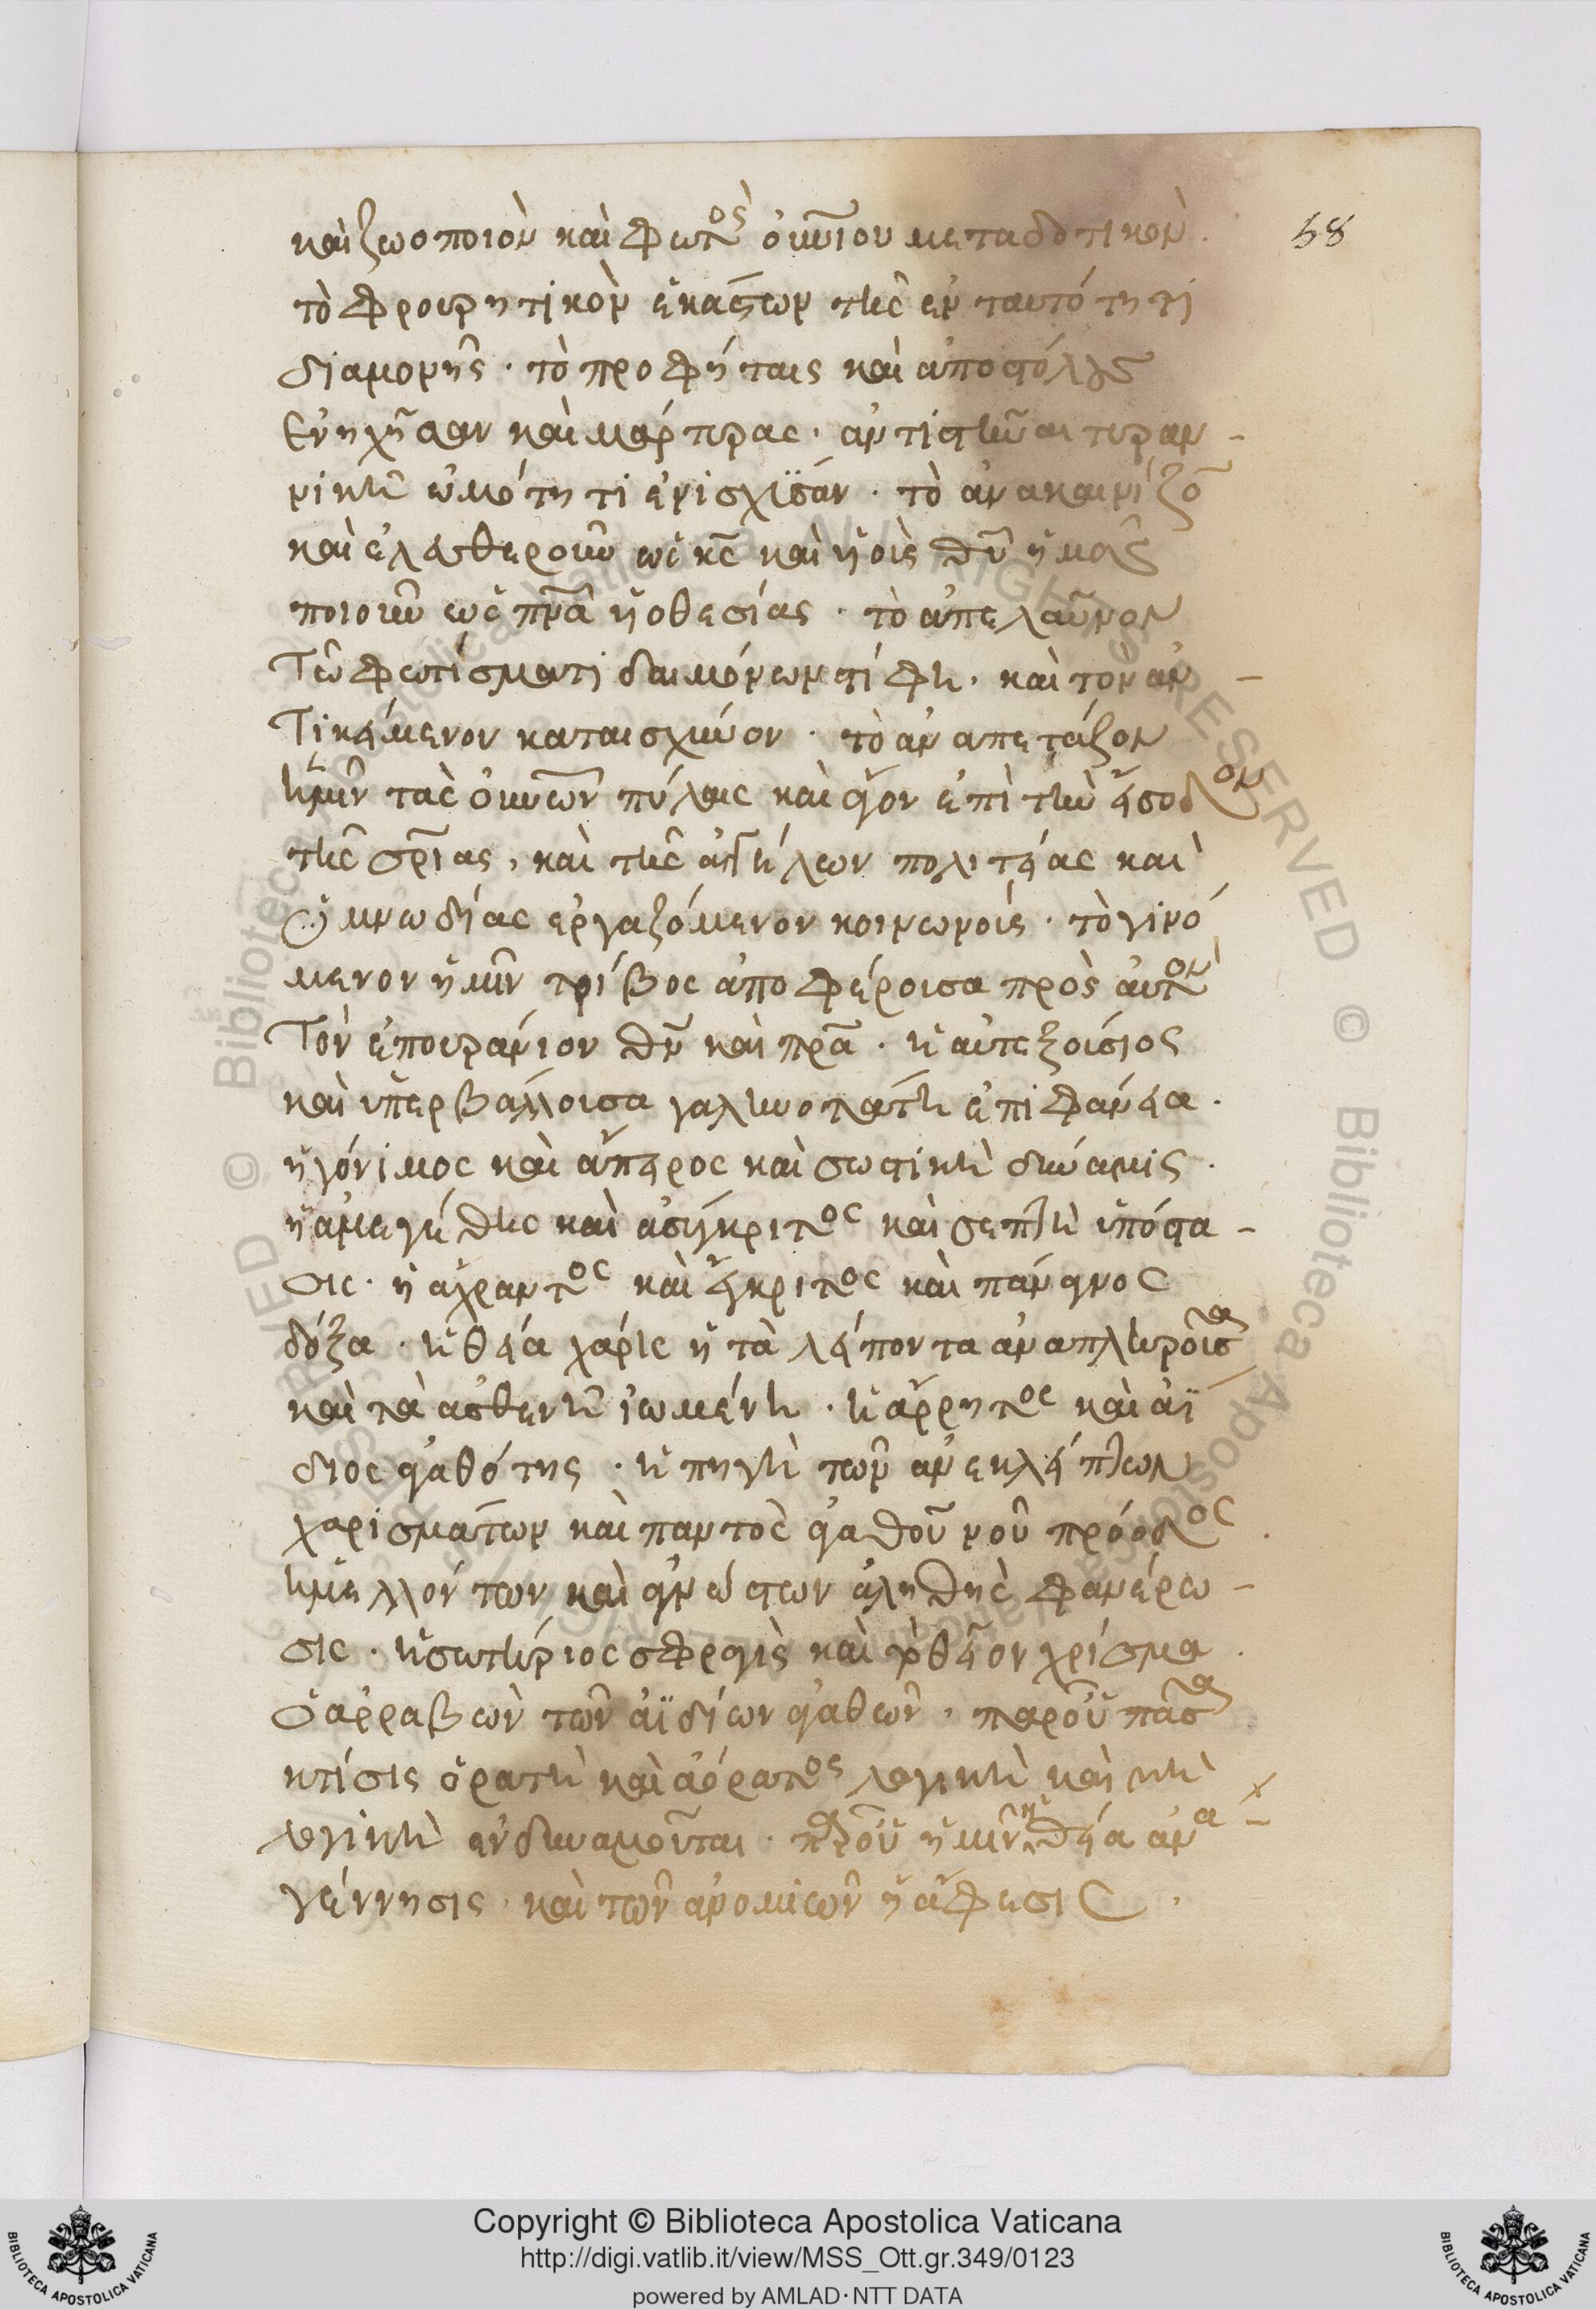 καὶ ζωοποιὸν καὶ φωτὸς οὐνίου μεταδοτικὸν. 58
τὸ φρουρητικὸν ἑκάστων τῆς ἐν ταυτότητι
διαμονῆς · τὸ προφήταις καὶ ἀποστόλοις
ἐνηχῆσαν καὶ μάρτυρας · ἀντιστῆναι τυραν -
νικῆ ὠμότητι ἐνισχύσαν · τὸ ἀνακαινίζον
καὶ ἐλευθεροῦν ὡς κς καὶ υἱοὺς θυ ἡμᾶς
ποιοῦν ὡς πνα υἱοθεσίας · τὸ ἀπελαῦνον
τῶ φωτίσματι δαιμόνων στίφη · καὶ τὸν ἀν -
τικείμενον καταισχύνον · τὸ ἀναπετάζον
ἡμῖν τὰς οὐνῶν πύλας καὶ ἄγον ἐπὶ τὴν εἴσοδον
τῆς σρίας, καὶ τῆς ἀγγέλων πολιτείας καὶ
ὑμνωδίας ἐργαζόμενον κοινωνοὺς · τὸ γινό
μενον ἡμῖν τρίβος ἀποφέρουσα πρὸς αὐτὸν
τὸν ἐπουράνιον θν καὶ πρα · ἡ αὐτεξούσιος
καὶ ὑπερβάλλουσα γαληνοτάτη ἐπιφάνεια ·
ἡ γόνιμος καὶ ἄπειρος καὶ σωστικὴ δύναμις ·
ἡ ἀμεγέθης καὶ ἀσύγκριτος καὶ σεπτὴ ὑπόστα -
σις · ἡ ἄχραντος καὶ ἔγκριτος καὶ πάναγνος
δόξα · ἡ θεία χάρις ἡ τὰ λείποντα ἀναπληροῦσα
καὶ τὰ ἀσθενῆ ἰωμένη · ἡ ἄρρητος καὶ ἀΐ
διος ἀγαθότης · ἡ πηγὴ τῶν ἀνεκλείπτων
χαρισμάτων καὶ παντὸς ἀγαθοῦ νοῦ πρόοδος .
ἡ μελλόντων καὶ ἀγνώστων ἀληθὴς φανέρω -
σις · ἡ σωτήριος σφραγὶς καὶ τὸ θεῖον χρίσμα .
ὁ ἀρραβὼν τῶν ἀϊδίων ἀγαθῶν · παρ' οὗ πᾶσα
κτίσις ὁρατὴ καὶ ἀόρατος λογικὴ καὶ μὴ
λογικὴ ἐνδυναμοῦται · παρ' οὗ ἡμῖν ἡ θεία ἀνα -
γέννησις · καὶ τῶν ἀνομιῶν ἡ ἄφεσις .
Copyright © Biblioteca Apostolica Vaticana
http://digi.vatlib.it/view/MSS_Ott.gr.349/0123
powered by AMLAD·NTT DATA